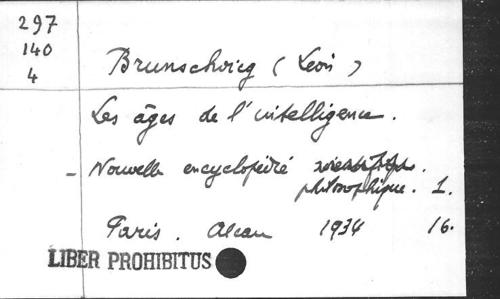 297
140
4
Brunschvicg (Léon)
Les âges de l'intelligence.
- Nouvelle encyclopédie
philosophique. 1.
Paris. Alcan 1934 16.
LIBER PROHIBITUS